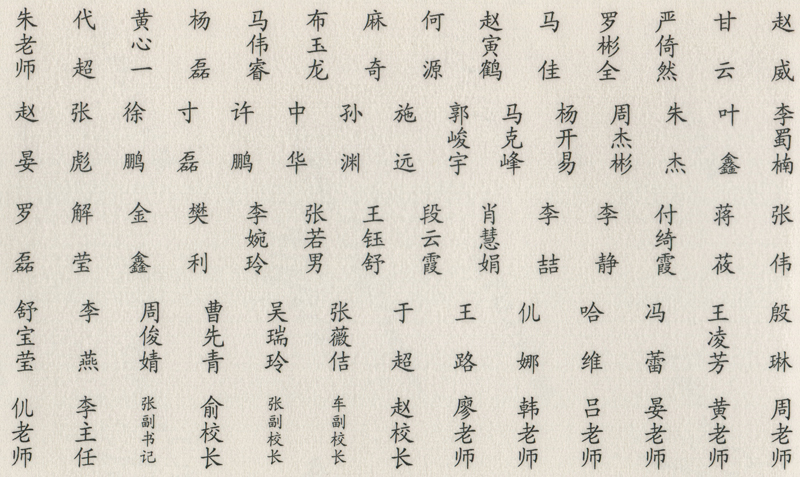 朱老师 代超 黄心一 杨磊 马伟睿 布玉龙 麻奇 何源 赵寅鹤 马佳 罗彬全 严倚然 甘云 赵威
赵晏 张彪 徐鹏 寸磊 许鹏 中华 孙渊 施远 郭峻宇 马克峰 杨开易 周杰彬 朱杰 叶鑫 李蜀楠
罗磊 解莹 金鑫 樊利 李婉玲 张若男 王钰舒 段云霞 肖慧娟 李喆 李静 付绮霞 蒋莜 张伟
舒宝莹 李燕 周俊婧 曹先青 吴瑞玲 张薇佶 于超 王路 仉娜 哈维 冯蕾 王凌芳 殷琳
仉老师 李主任 张副书记 俞校长 张副校长 车副校长 赵校长 廖老师 韩老师 吕老师 晏老师 黄老师 周老师